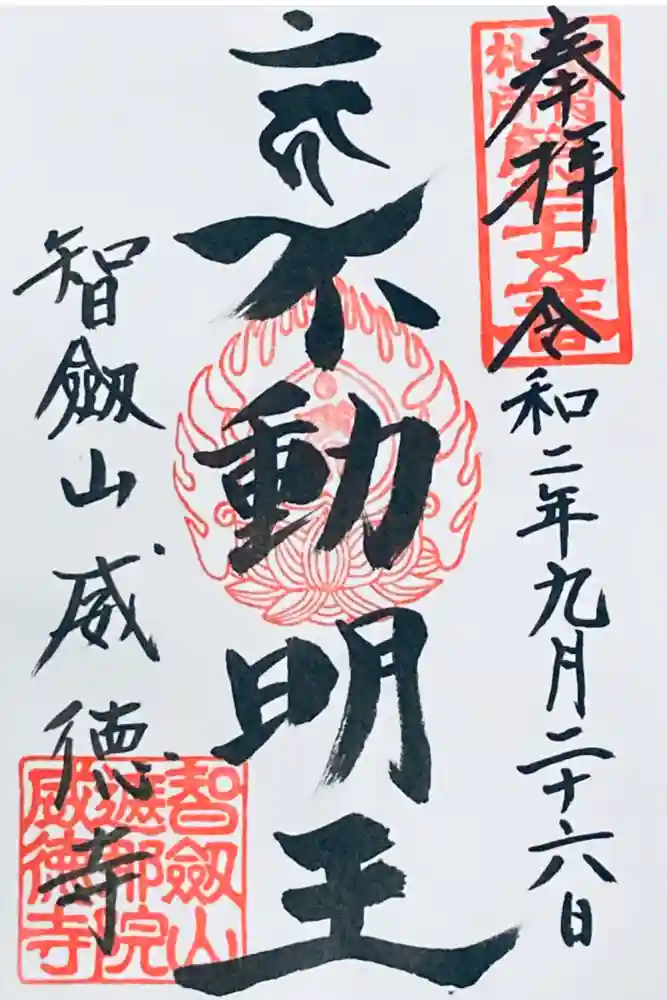 奉拝
令和二年九月二十六日
不動明王
智劔山威徳寺
智劔山
遮那院
威徳寺